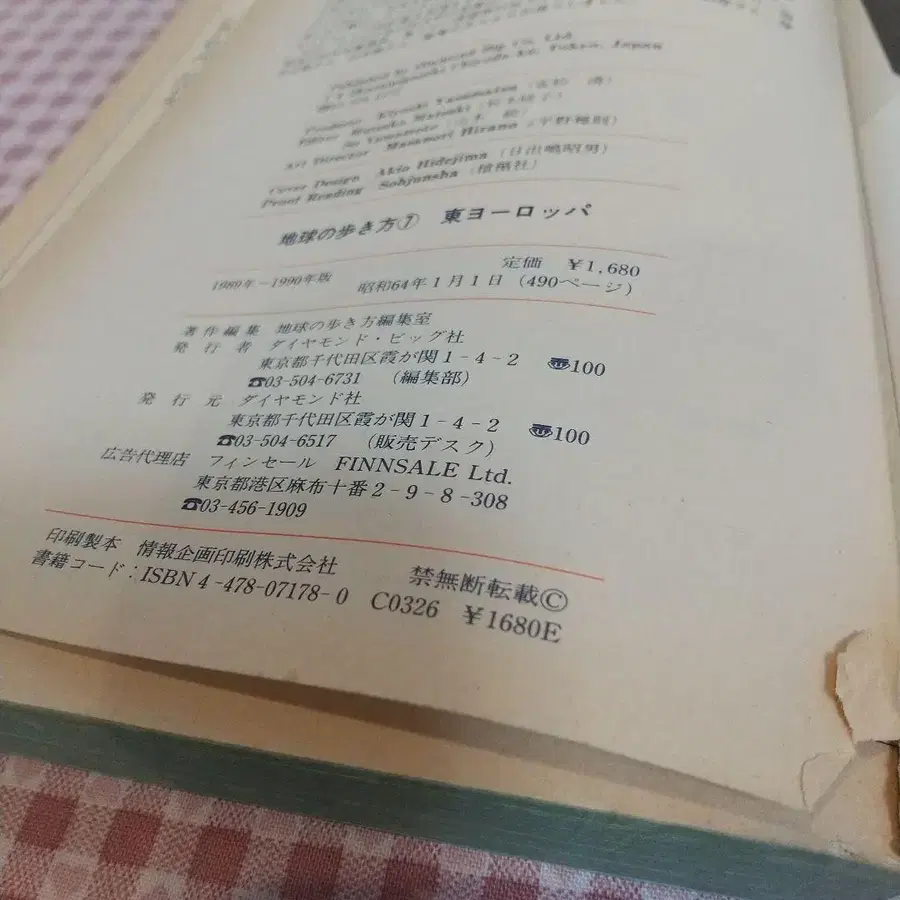 Tokyo, Japan
Art Director Masanori Hirano (平野雅則)
Cover Design Akio Hidejima (日出嶋昭男)
Proof Reading Sohjunsha
地球の歩き方⑦ 東ヨーロッパ
定価 ¥1,680
1989年-1990年版 昭和64年1月1日 (490ページ)
著作編集 地球の歩き方編集室
発行者 ダイヤモンド・ビッグ社
東京都千代田区霞が関1-4-2 〠100
☎03-504-6731 (編集部)
発行元 ダイヤモンド社
東京都千代田区霞が関1-4-2 〠100
☎03-504-6517 (販売デスク)
広告代理店 フィンセール FINNSALE Ltd.
東京都港区麻布十番2-9-8-308
☎03-456-1909
印刷製本 情報企画印刷株式会社 禁無断転載©
書籍コード:ISBN4-478-07178-0 C0326 ¥1680E